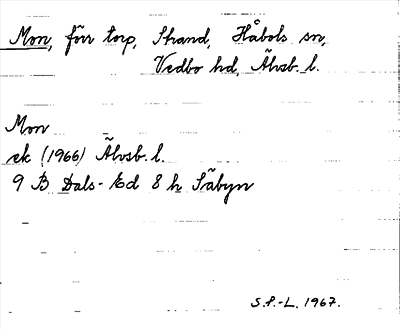 Mon, förr torp, Strand, Håbols sn,
Vedbo hd, Älvsb. l.
Mon
ek (1966) Älvsb. l.
9 B Dals-Ed 8 h Säbyn
S.P.-L. 1967.